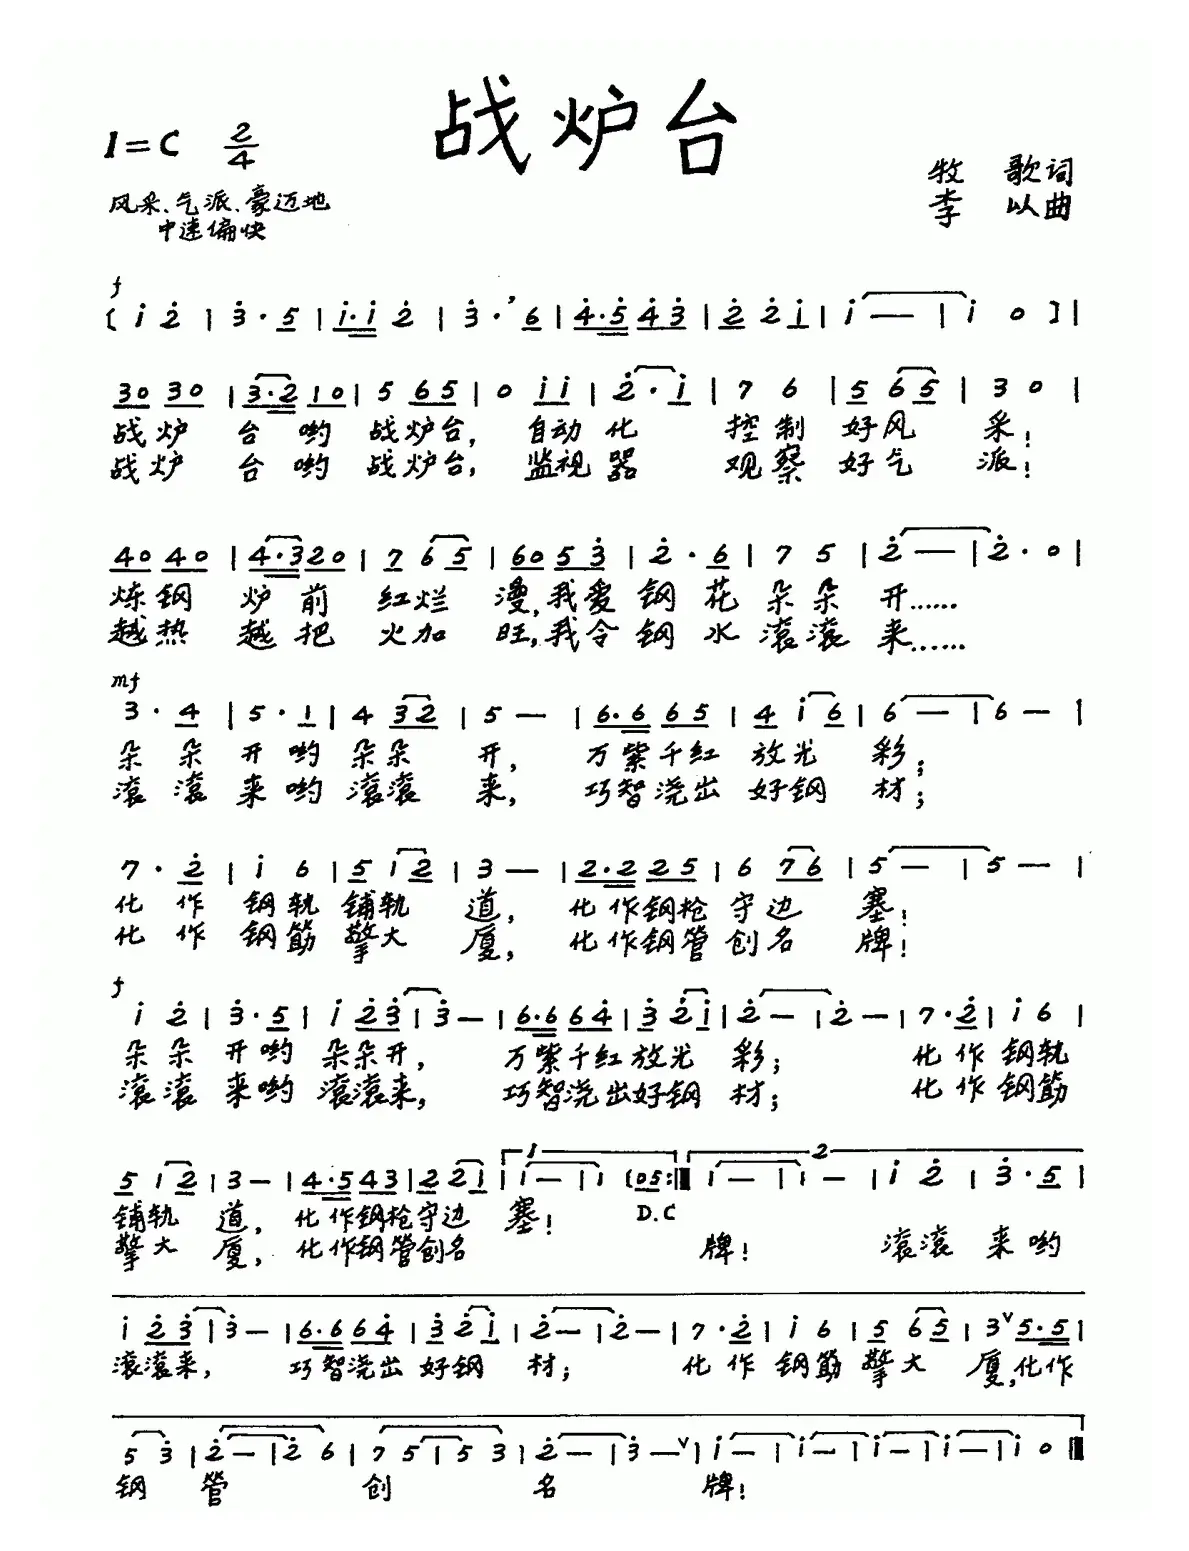 战炉台
1=C 2/4
牧 歌词
李 以曲
风采、气派、豪迈地
中速偏快
f
( i 2̇ | 3̇ · 5 | i · i 2̇ | 3̇ · ’ 6 | 4̇ · 5̇ 4̇ 3̇ | 2̇ 2̇ i | i — | i 0 ) |
30 30 | 3 · 2 10 | 5 65 | 0 i i | 2̇ · i | 7 6 | 5 65 | 3 0 |
战炉 台 哟 战炉台, 自动化 控制 好风 采!
战炉 台 哟 战炉台, 监视器 观察 好气 派!
40 40 | 4 · 3 20 | 7 65 | 60 5 3̇ | 2̇ · 6 | 7 5 | 2̇ — | 2̇ · 0 |
炼钢 炉前 红烂 漫,我爱钢花朵朵 开……
越热 越把 火加 旺,我令钢水滚滚 来……
mf
3 · 4 | 5 · 1 | 4 32 | 5 — | 6 · 6 65 | 4 i 6 | 6 — | 6 — |
朵朵 开哟朵朵 开, 万紫千红 放光 彩;
滚滚 来哟滚滚 来, 巧智浇出 好钢 材;
7 · 2̇ | i 6 | 5 i 2̇ | 3 — | 2 · 2 25 | 6 76 | 5 — | 5 — |
化作 钢轨 铺轨 道, 化作钢枪守边 塞!
化作 钢筋 擎大 厦, 化作钢管创名 牌!
f
i 2̇ | 3̇ · 5 | i 2̇3̇ | 3̇ — | 6 · 6 64̇ | 3̇ 2̇i | 2̇ — | 2̇ — | 7 · 2̇ | i 6 |
朵朵 开哟 朵朵开, 万紫千红放光 彩; 化作钢轨
滚滚 来哟 滚滚来, 巧智浇出好钢 材; 化作钢筋
1 2
5 i 2̇ | 3 — | 4̇ · 5̇ 4̇3̇ | 2̇ 2̇i | i — | i (05 :‖ i — | i — | i 2̇ | 3̇ · 5 |
铺轨 道, 化作钢枪守边 塞! D.C
擎大 厦, 化作钢管创名 牌! 滚滚 来哟
i 2̇3̇ | 3̇ — | 6 · 6 64̇ | 3̇ 2̇i | 2̇ — | 2̇ — | 7 · 2̇ | i 6 | 5 65 | 3 ∨ 5 · 5 |
滚滚来, 巧智浇出 好钢 材; 化作 钢筋 擎大 厦,化作
5 3̇ | 2̇ — | 2̇ 6 | 7 5 | 5 3 | 2̇ — | 3̇ — ∨ | i — | i — | i — | i — | i 0 ‖
钢 管 创 名 牌!